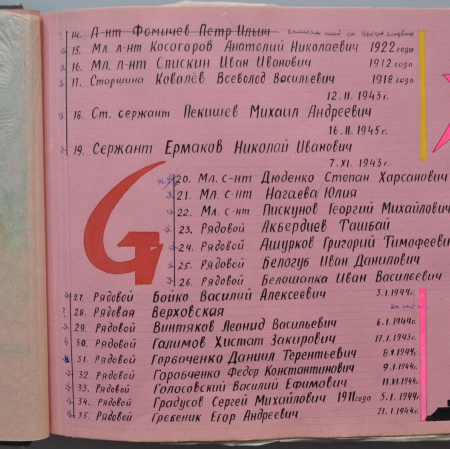 14. Л-нт Фомичев Петр Ильич
15. Мл. л-нт Косогоров Анатолий Николаевич 1922 года
16. Мл. л-нт Спискин Иван Иванович 1912 года
17. Старшина Ковалёв Всеволод Васильевич 1918 года
12. II. 1943 г.
18. Ст. сержант Пекишев Михаил Андреевич
16. II. 1945 г.
19. Сержант Ермаков Николай Иванович
7. XI. 1943 г.
20. Мл. с-нт Дюденко Степан Харсанович
21. Мл. с-нт Нагаева Юлия
22. Мл. с-нт Пискунов Георгий Михайлович
23. Рядовой Акбердиев Ташбай
24. Рядовой Ашурков Григорий Тимофееви
25. Рядовой Белогуб Иван Данилович
26. Рядовой Белошапка Иван Васильевич
27. Рядовой Бойко Василий Алексеевич 3. I. 1944 г.
28. Рядовая Верховская
29. Рядовой Винтяков Леонид Васильевич 6. I. 1944 г.
30. Рядовой Галимов Хистат Закирович 17. I. 1943 г.
31. Рядовой Горбаченко Даниил Терентьевич 8. II 1944 г.
32. Рядовой Горобченко Федор Константинович 9. I. 1944 г.
33. Рядовой Голосовский Василий Ефимович 11. VI. 1944 г.
34. Рядовой Градусов Сергей Михайлович 1911 года 5. I. 1944 г.
35. Рядовой Гребеник Егор Андреевич 21. I. 1944 г.